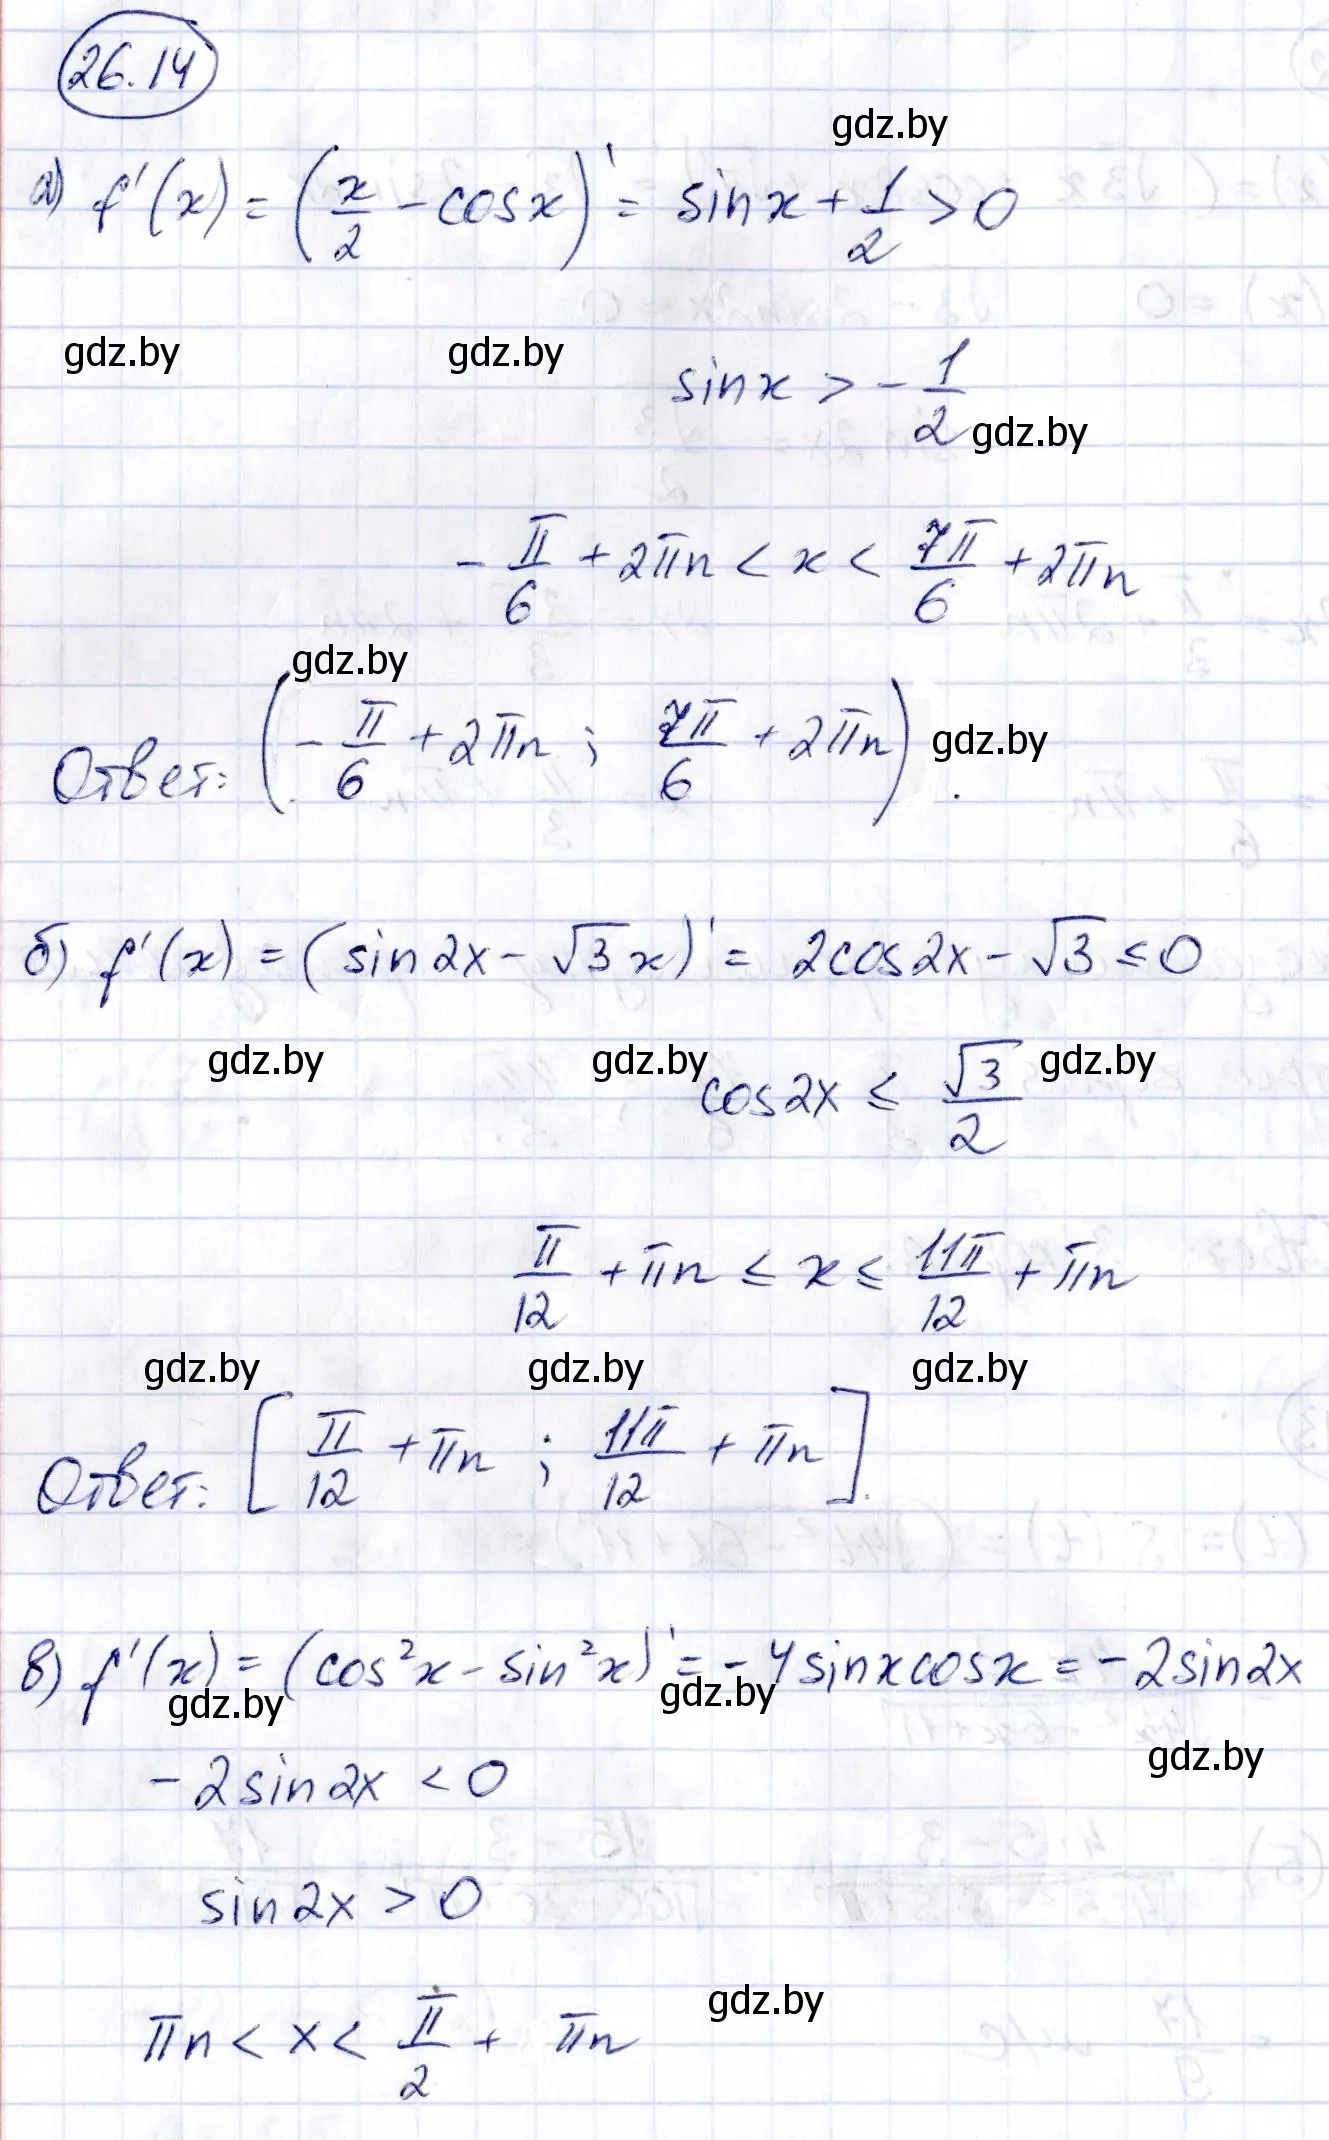 26.14
gdz.by
а) f'(x) = (x/2 - cosx)' = sinx + 1/2 > 0
gdz.by gdz.by
sinx > - 1/2
gdz.by
- π/6 + 2πn < x < 7π/6 + 2πn
gdz.by
Ответ: (- π/6 + 2πn ; 7π/6 + 2πn) .
gdz.by
б) f'(x) = (sin2x - √3x)' = 2cos2x - √3 ≤ 0
gdz.by gdz.by gdz.by
cos2x ≤ √3/2
π/12 + πn ≤ x ≤ 11π/12 + πn
gdz.by gdz.by gdz.by
Ответ: [π/12 + πn ; 11π/12 + πn].
в) f'(x) = (cos²x - sin²x)' = - 4sinxcosx = - 2sin2x
gdz.by gdz.by
gdz.by
- 2sin2x < 0
sin2x > 0
gdz.by
πn < x < π/2 + πn